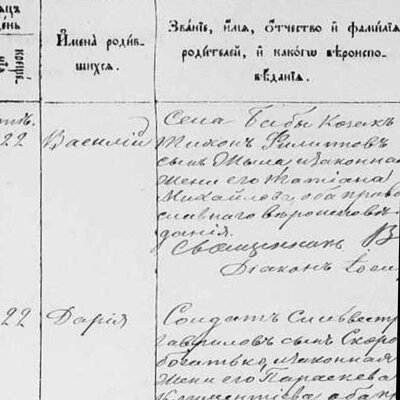 Званіе, имя, отчество и фамилія
родителей, и какогѡ вѣроиспо-
вѣданія.
Имена родив-
шихся.
22
Василій
Села Бабы Козакъ
Тихонъ Филиповъ
сынъ и законная
жена его Татіана
Михайлова, оба право
славнаго вѣроисповѣ-
данія.
Священникъ В
Діаконъ
22
Дарія
Солдатъ Сильвестр
Гавриловъ сынъ Скоро
богатько, и законная
жена его Параскева
Климентіева оба пр